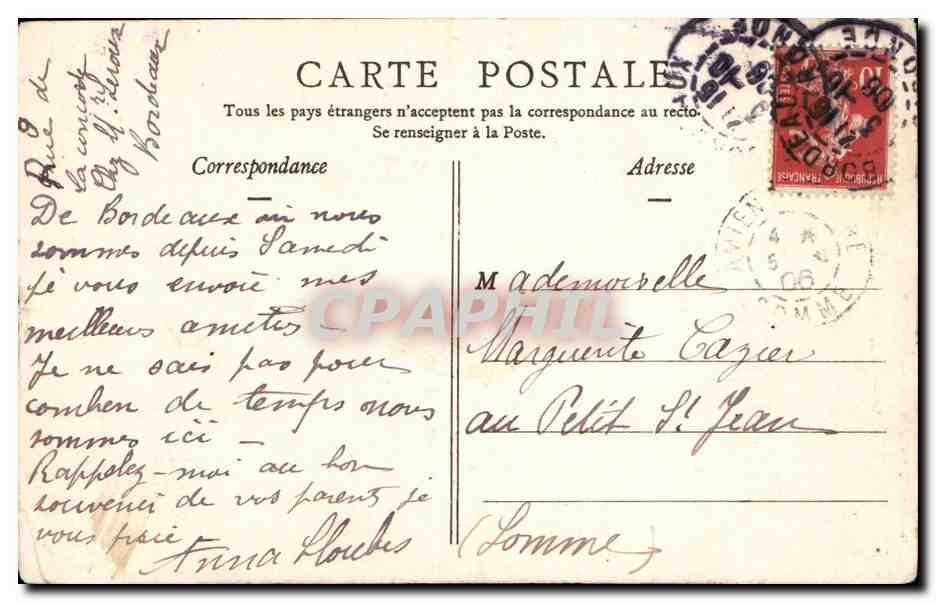 CARTE POSTALE
Tous les pays étrangers n'acceptent pas la correspondance au recto.
Se renseigner à la Poste.
Correspondance
Adresse
Rue de
Bordeaux
De Bordeaux où nous
sommes depuis Samedi
je vous envoie mes
meilleurs amitiés -
Je ne sais pas pour
combien de temps nous
sommes ici -
Rappelez-moi au bon
souvenir de vos parents je
vous prie
Anna
Mademoiselle
Marguerite Cazier
au Petit St Jean
(Somme)
10
REPUBLIQUE FRANÇAISE
BORDEAUX
06
SOMME
CPAPHIL